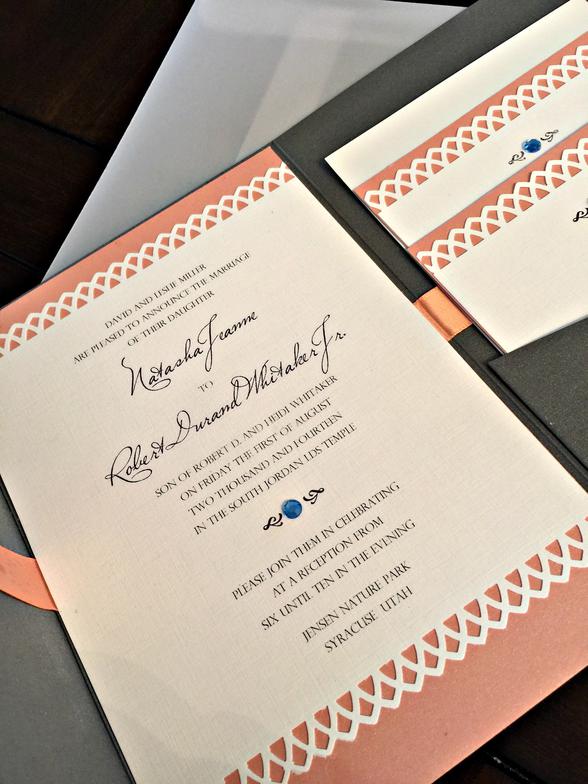 DAVID AND LESLIE MILLER
ARE PLEASED TO ANNOUNCE THE MARRIAGE
OF THEIR DAUGHTER
Natasha Jeanne
TO
Robert Durand Whitaker Jr.
SON OF ROBERT D. AND HEIDI WHITAKER
ON FRIDAY THE FIRST OF AUGUST
TWO THOUSAND AND FOURTEEN
IN THE SOUTH JORDAN LDS TEMPLE
PLEASE JOIN THEM IN CELEBRATING
AT A RECEPTION FROM
SIX UNTIL TEN IN THE EVENING
JENSEN NATURE PARK
SYRACUSE UTAH